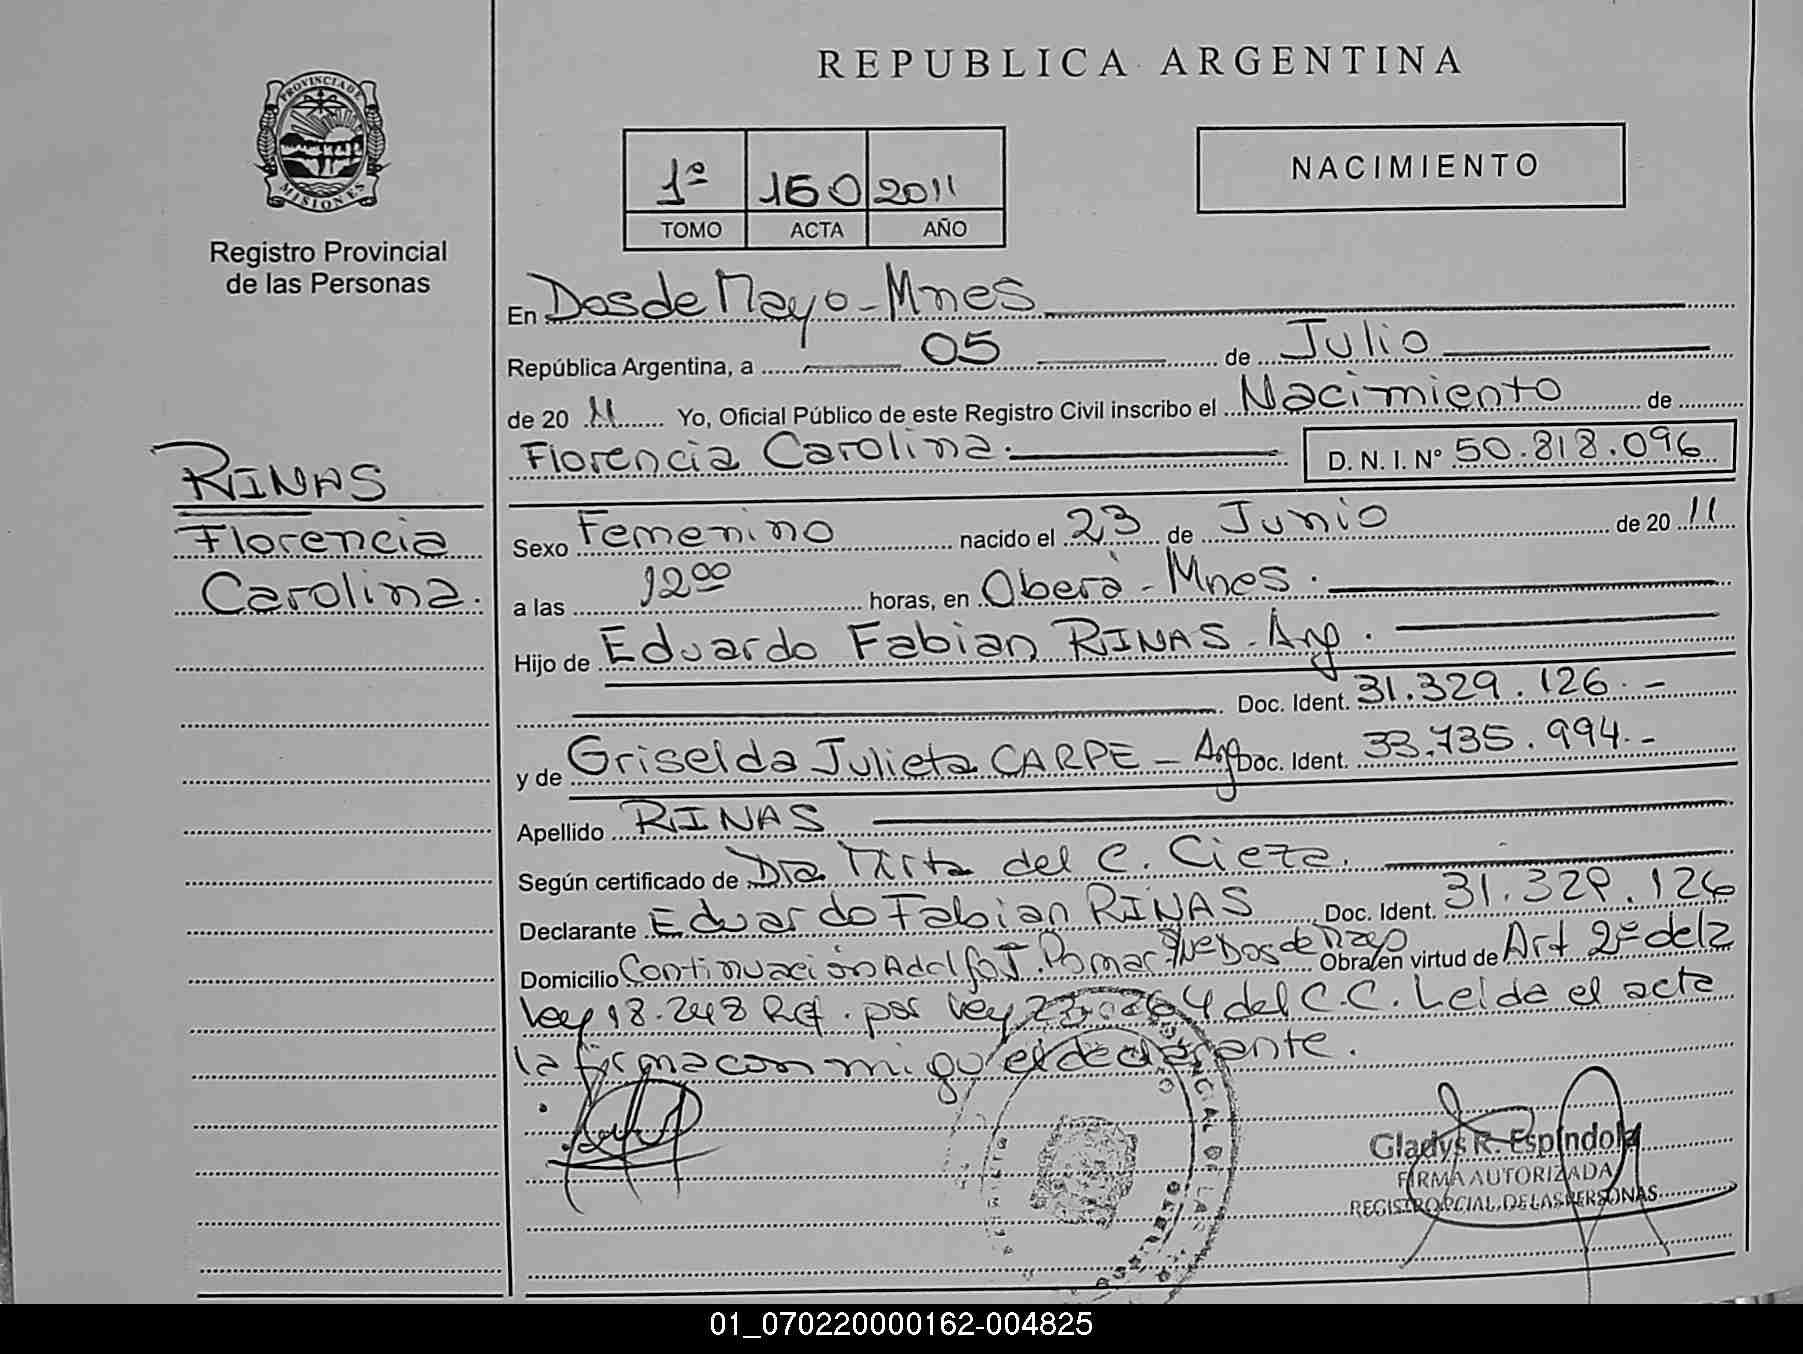 REPUBLICA ARGENTINA
PROVINCIA DE MISIONES
Registro Provincial
de las Personas
1º 160 2011
TOMO ACTA AÑO
NACIMIENTO
En Dos de Mayo - Mnes
República Argentina, a 05 de Julio
de 20 11 Yo, Oficial Público de este Registro Civil inscribo el Nacimiento de
Florencia Carolina. D. N. I. Nº 50.818.096
RINAS
Florencia
Carolina.
Sexo Femenino nacido el 23 de Junio de 20 11
a las 12 00 horas, en Oberá - Mnes.
Hijo de Eduardo Fabian RINAS - Arg.
Doc. Ident. 31.329.126.-
y de Griselda Julieta CARPE - Arg Doc. Ident. 33.735.994.-
Apellido RINAS
Según certificado de Dra Mirta del C. Cieza.
Declarante Eduardo Fabian RINAS Doc. Ident. 31.329.126
Domicilio Continuación Adolfo J. Pomar Dos de Mayo Obra en virtud de Art 2º de la
Ley 18.248 Ref. por Ley 23.264 del C.C. Leida el acta
la firma conmigo el declarante.
Gladys R. Espíndola
FIRMA AUTORIZADA
REGISTRO PCIAL. DE LAS PERSONAS
01_070220000162-004825